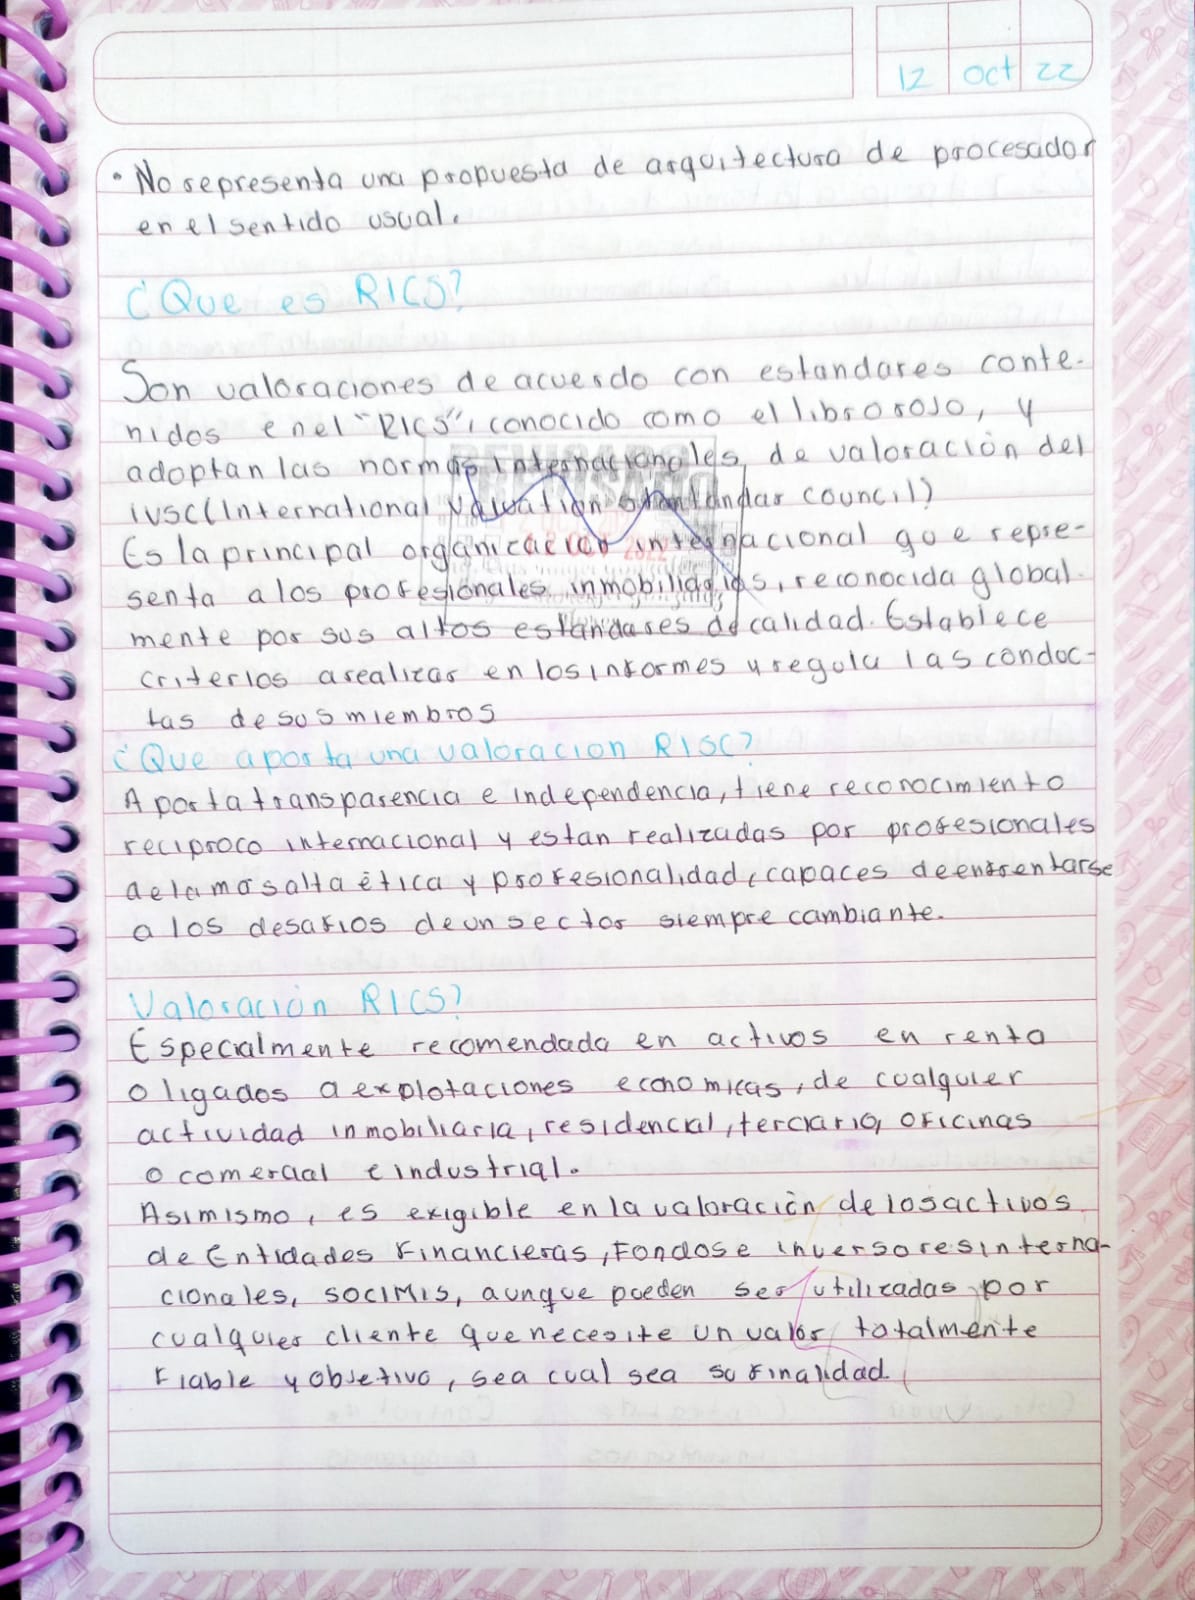 12 Oct 22
• No representa una propuesta de arquitectura de procesador
en el sentido usual.
¿Que es RICS?
Son valoraciones de acuerdo con estandares conte-
nidos en el "RICS", conocido como el libro rojo, y
adoptan las normas internacionales de valoración del
ivsc (International Valuation standar council)
Es la principal organización internacional que repre-
senta a los profesionales inmobiliarios, reconocida global-
mente por sus altos estándares de calidad. Establece
criterios a realizar en los informes y regula las conduc-
tas de sus miembros
¿Que aporta una valoracion RISC?
Aporta transparencia e independencia, tiene reconocimiento
reciproco internacional y estan realizadas por profesionales
de la mas alta ética y profesionalidad, capaces de enfrentarse
a los desafios de un sector siempre cambiante.
Valoración RICS?
Especialmente recomendada en activos en renta
o ligados a explotaciones economicas, de cualquier
actividad inmobiliaria, residencial, terciario, oficinas
o comercial e industrial.
Asimismo, es exigible en la valoración de los activos
de Entidades Financieras, Fondos e inversores interna-
cionales, SOCIMIS, aunque pueden ser utilizadas por
cualquier cliente que necesite un valor totalmente
Fiable y objetivo, sea cual sea su finalidad.
REVISADO
12 OCT 2022